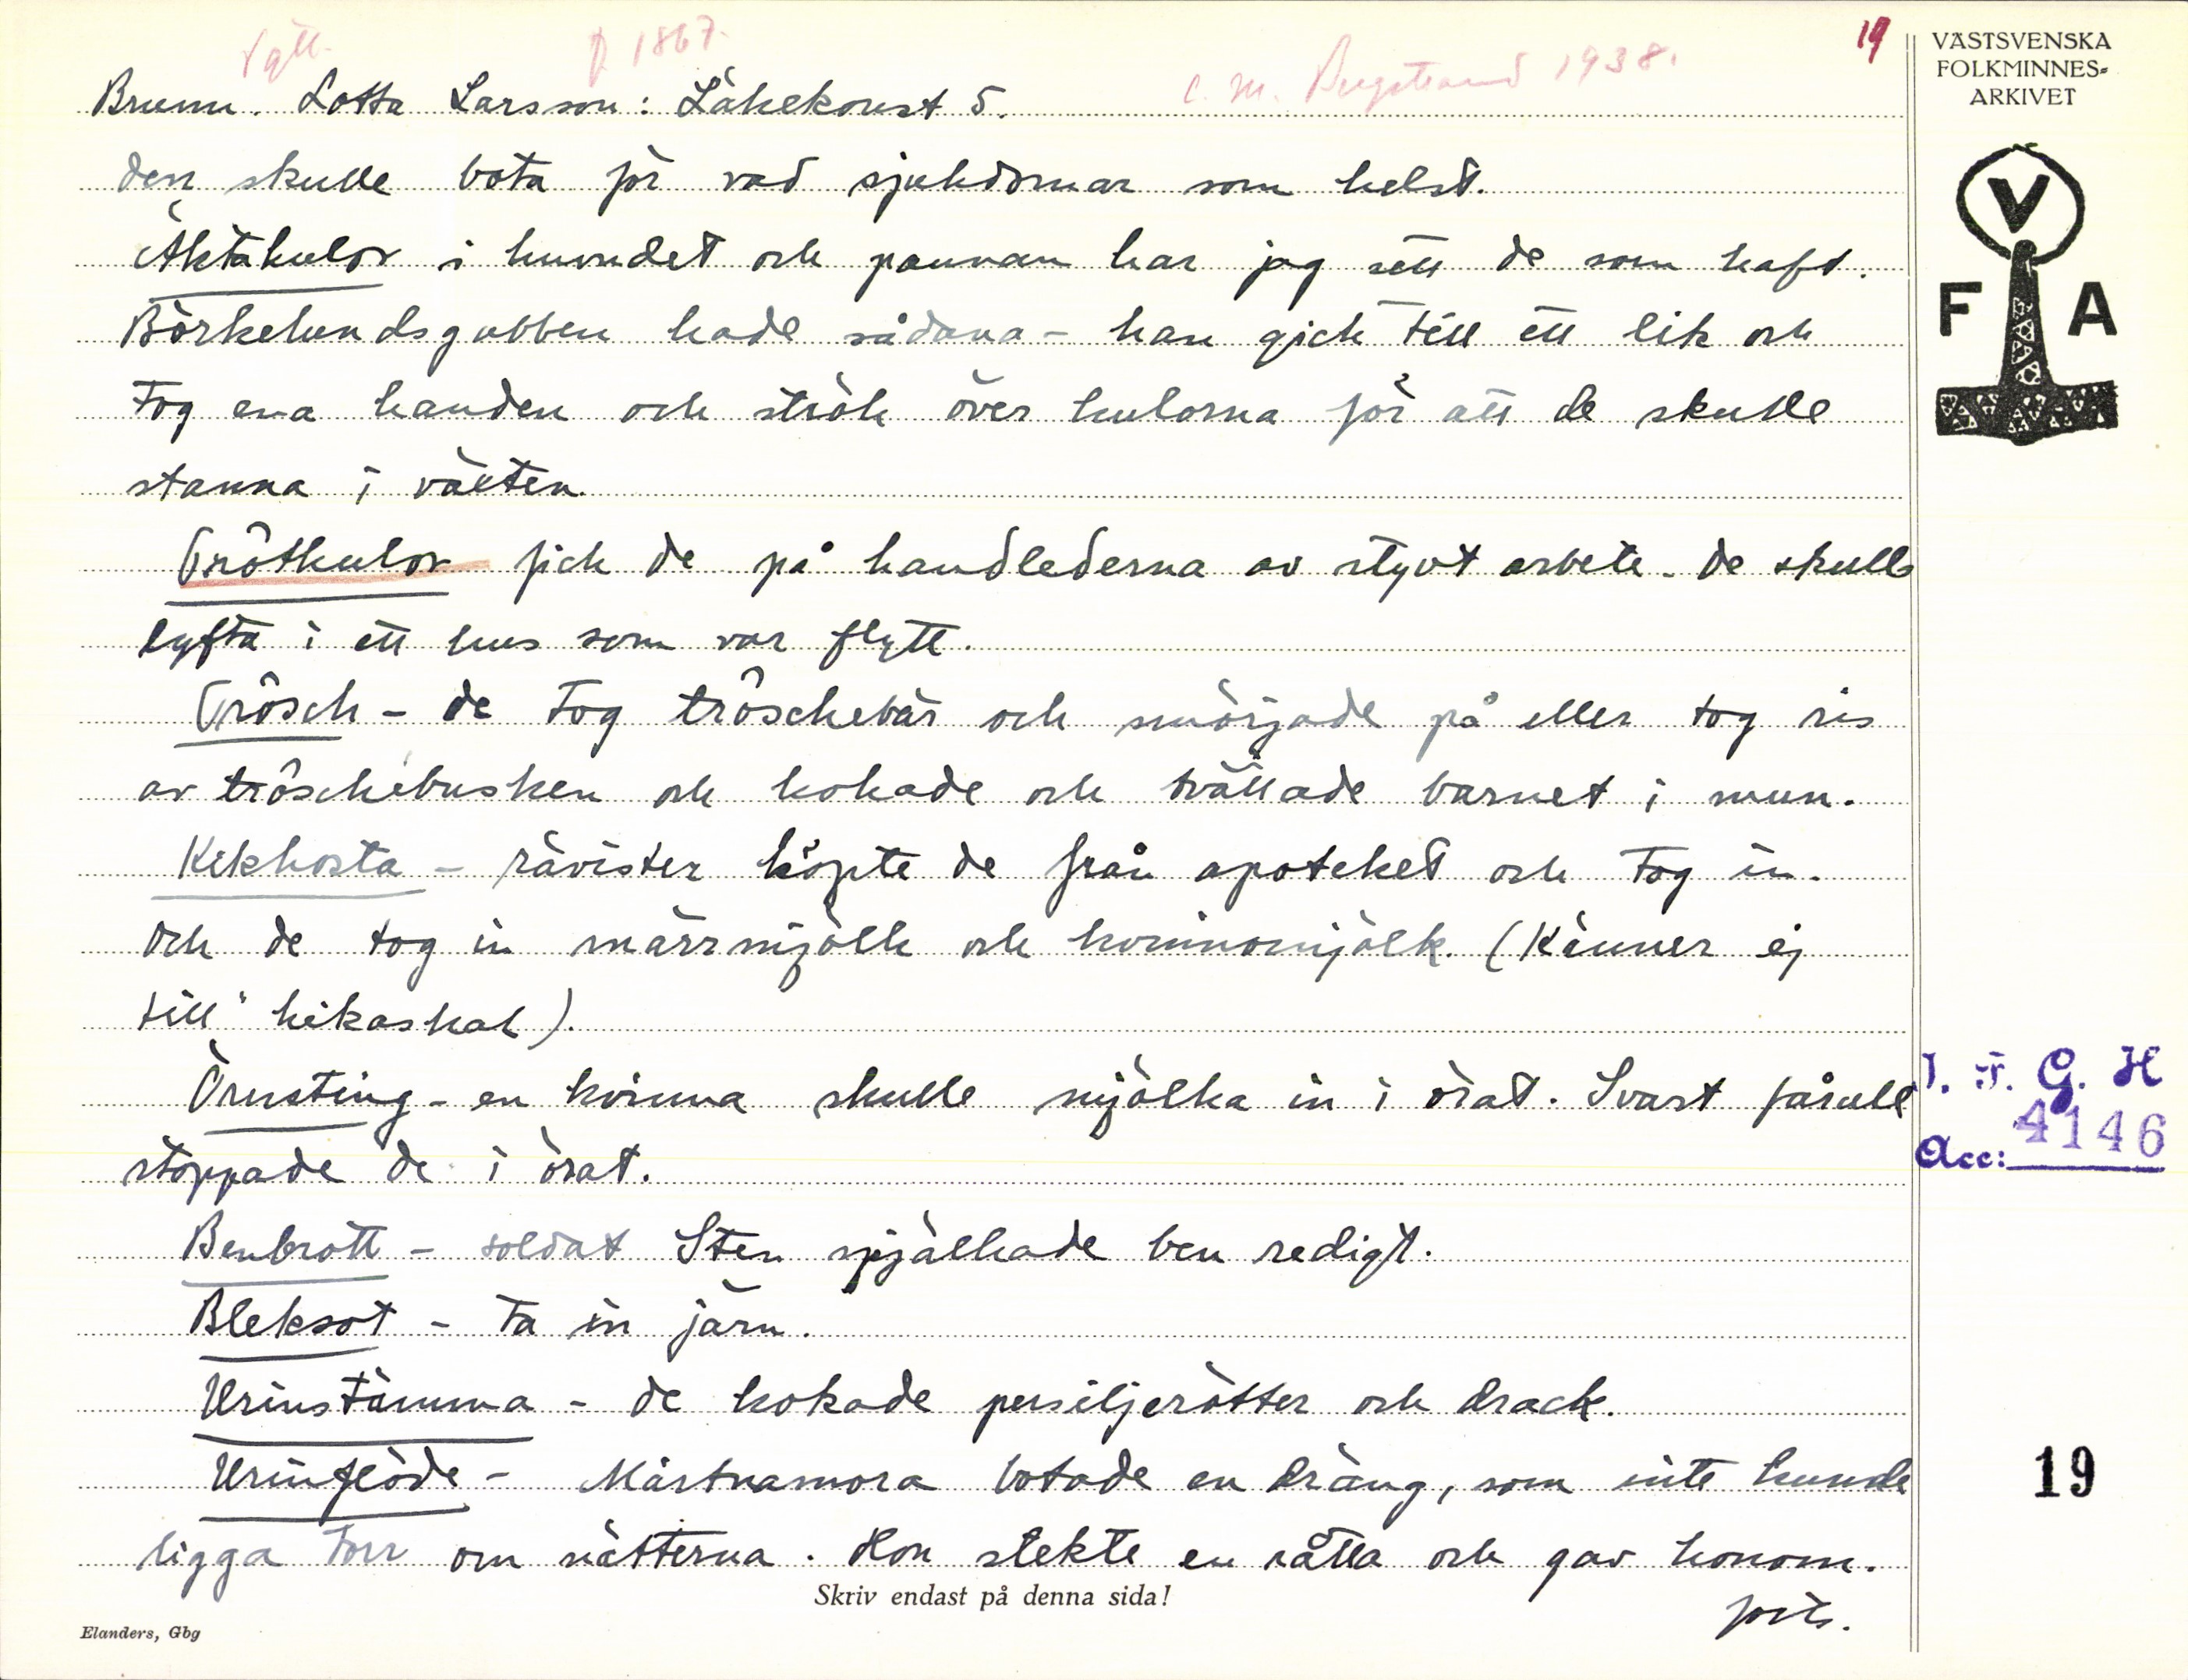 Vgtl. f 1867. C. M. Bergstrand 1938. 19
VÄSTSVENSKA
FOLKMINNES-
ARKIVET
V
F A
Brunn. Lotta Larsson: Läkekonst 5.
den skulle bota för vad sjukdomar som helst.
Äktakulor i huvudet och pannan har jag sett de som haft.
Börkelundsgubben hade sådana - han gick till ett lik och
tog ena handen och strök över kulorna för att de skulle
stanna i växten.
Grötkulor fick de på handlederna av styvt arbete. de skulle
lyfta i ett hus som var flytt.
Trôsch - de tog trôschebär och smörjade på eller tog ris
av trôschebusken och kokade och tvättade barnet i mun.
Kikhosta - rävister köpte de från apoteket och tog in.
Och de tog in märrmjölk och kvinnomjölk. (Känner ej
till kikaskal).
Örusting - en kvinna skulle mjölka in i örat. Svart fårull
stoppade de i örat.
Benbrott - soldat Sten spjälkade ben redigt.
Bleksot - ta in järn.
Urinstämma - de kokade persiljerötter och drack.
Urinflöde - Mårtnamora botade en dräng, som inte kunde
ligga torr om nätterna. Hon stekte en råtta och gav honom.
forts.
I. F. G. H
Acc: 4146
19
Skriv endast på denna sida!
Elanders, Gbg